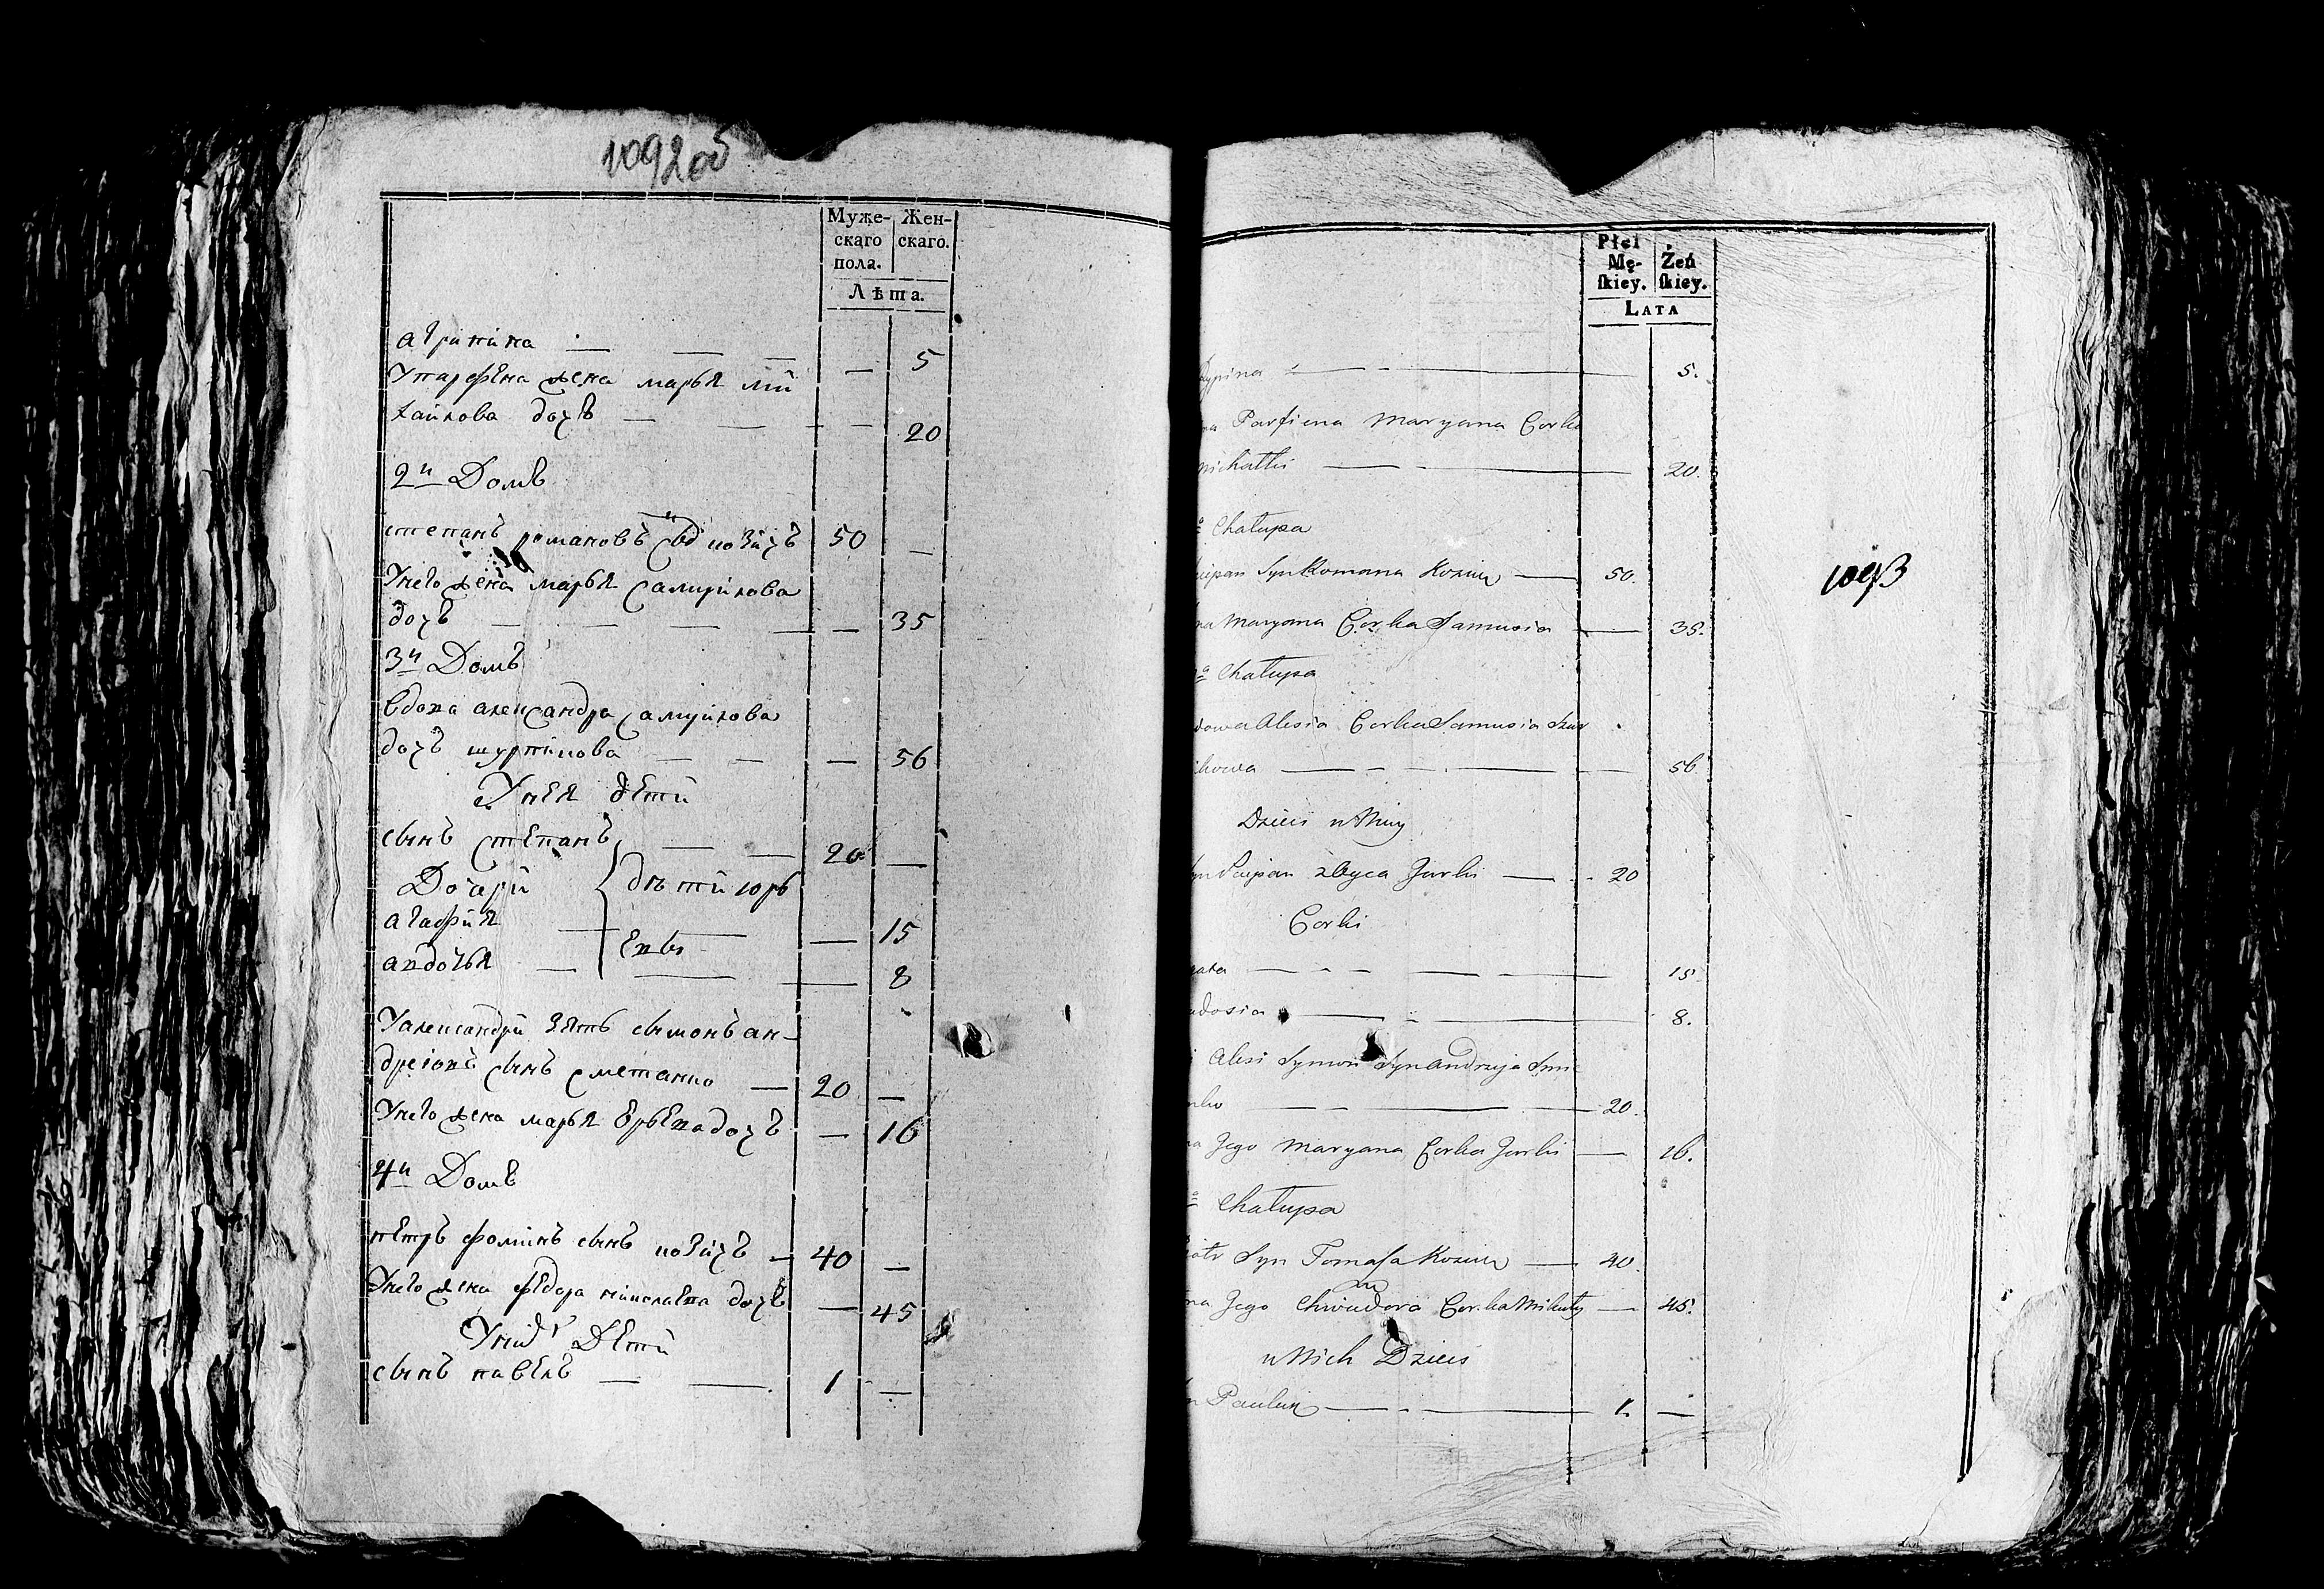 1092об
Муже-
скаго
пола.
Жен-
скаго.
Лѣта.
агрипина — — — — 5
Упарфена жена марья ми
хайлова дочь — — — — 20
2й Домъ
степанъ романовъ сынъ козичъ 50 —
Унего жена марья самуйлова
дочь — — — — — 35
3й Домъ
вдова александра самуйлова
дочь шуркнова — — — 56
Унея дети
сынъ степанъ — — 20 —
Дочери { дѣти юрь
агафия — — — 15
евы
авдотья — — — 8
Уалександри зять сымонъ ан-
дреіовъ сынъ сметанко — 20 —
Унего жена марья юрьева дочь — 16
4й Домъ
петръ фоминъ сынъ козичъ — 40 —
Унего жена федора николаева дочь — 45
Унихъ Дети
сынъ павелъ — — 1 —
Płci
Mę-
ſkiey.
Żeń
ſkiey.
LATA
1093
ypina — — — 5.
na Parfiena Maryana Corka
Michałki — — — 20.
a Chałupa
cipan Syn Romana Kozicz — 50.
na Maryana Corka Samusia — 35.
a Chałupa
dowa Alesia Corka Samusia Szur
ikowa — — — — 56.
Dzieci u Niey
yn Sciepan z Oyca Jurki — — 20
Corki
gata — — — — 15
udosia — — — 8.
i Alesi Symon Syn Andrzeja Smie
nko — — — 20.
na Jego Maryana Corka Jurki — 16.
a Chałupa
iotr Syn Tomaſza Kozicz — 40.
na Jego Chwiedora Corka Mikołaj — 45.
u Nich Dzieci
n Pauluk — — — 1. —